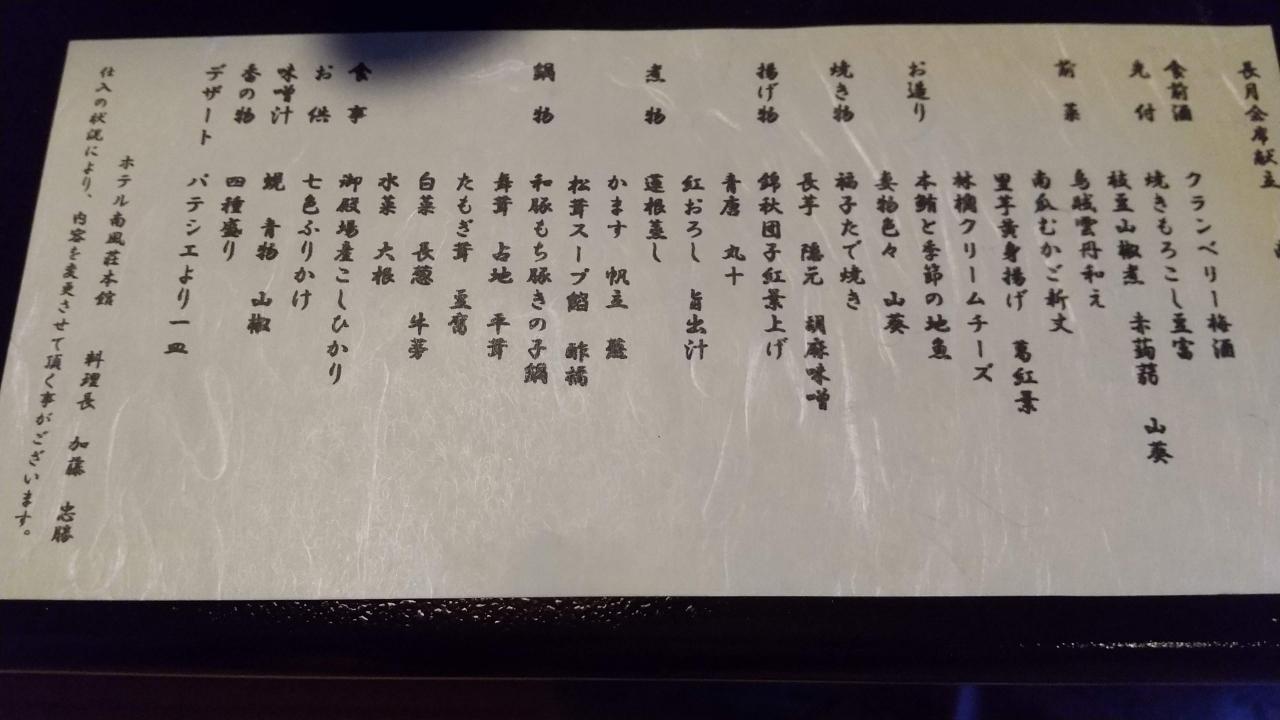 長月会席献立
食前酒 クランベリー梅酒
先付 焼きもろこし豆富
枝豆山椒煮 赤蒟蒻 山葵
前菜 烏賊雲丹和え
南瓜むかご新丈
里芋黄身揚げ 葛紅葉
林檎クリームチーズ
お造り 本鮪と季節の地魚
妻物色々 山葵
焼き物 福子たで焼き
長芋 隠元 胡麻味噌
揚げ物 錦秋団子紅葉上げ
青唐 丸十
紅おろし 旨出汁
煮物 蓮根蒸し
かます 帆立
松茸スープ餡 酢橘
鍋物 和豚もち豚きの子鍋
舞茸 占地 平茸
たもぎ茸 豆腐
白菜 長葱 牛蒡
水菜 大根
食事 御殿場産こしひかり
お供 七色ふりかけ
味噌汁 蜆 青物 山椒
香の物 四種盛り
デザート パテシエより一皿
ホテル南風荘本館 料理長 加藤 忠勝
仕入の状況により、内容を変更させて頂く事がございます。